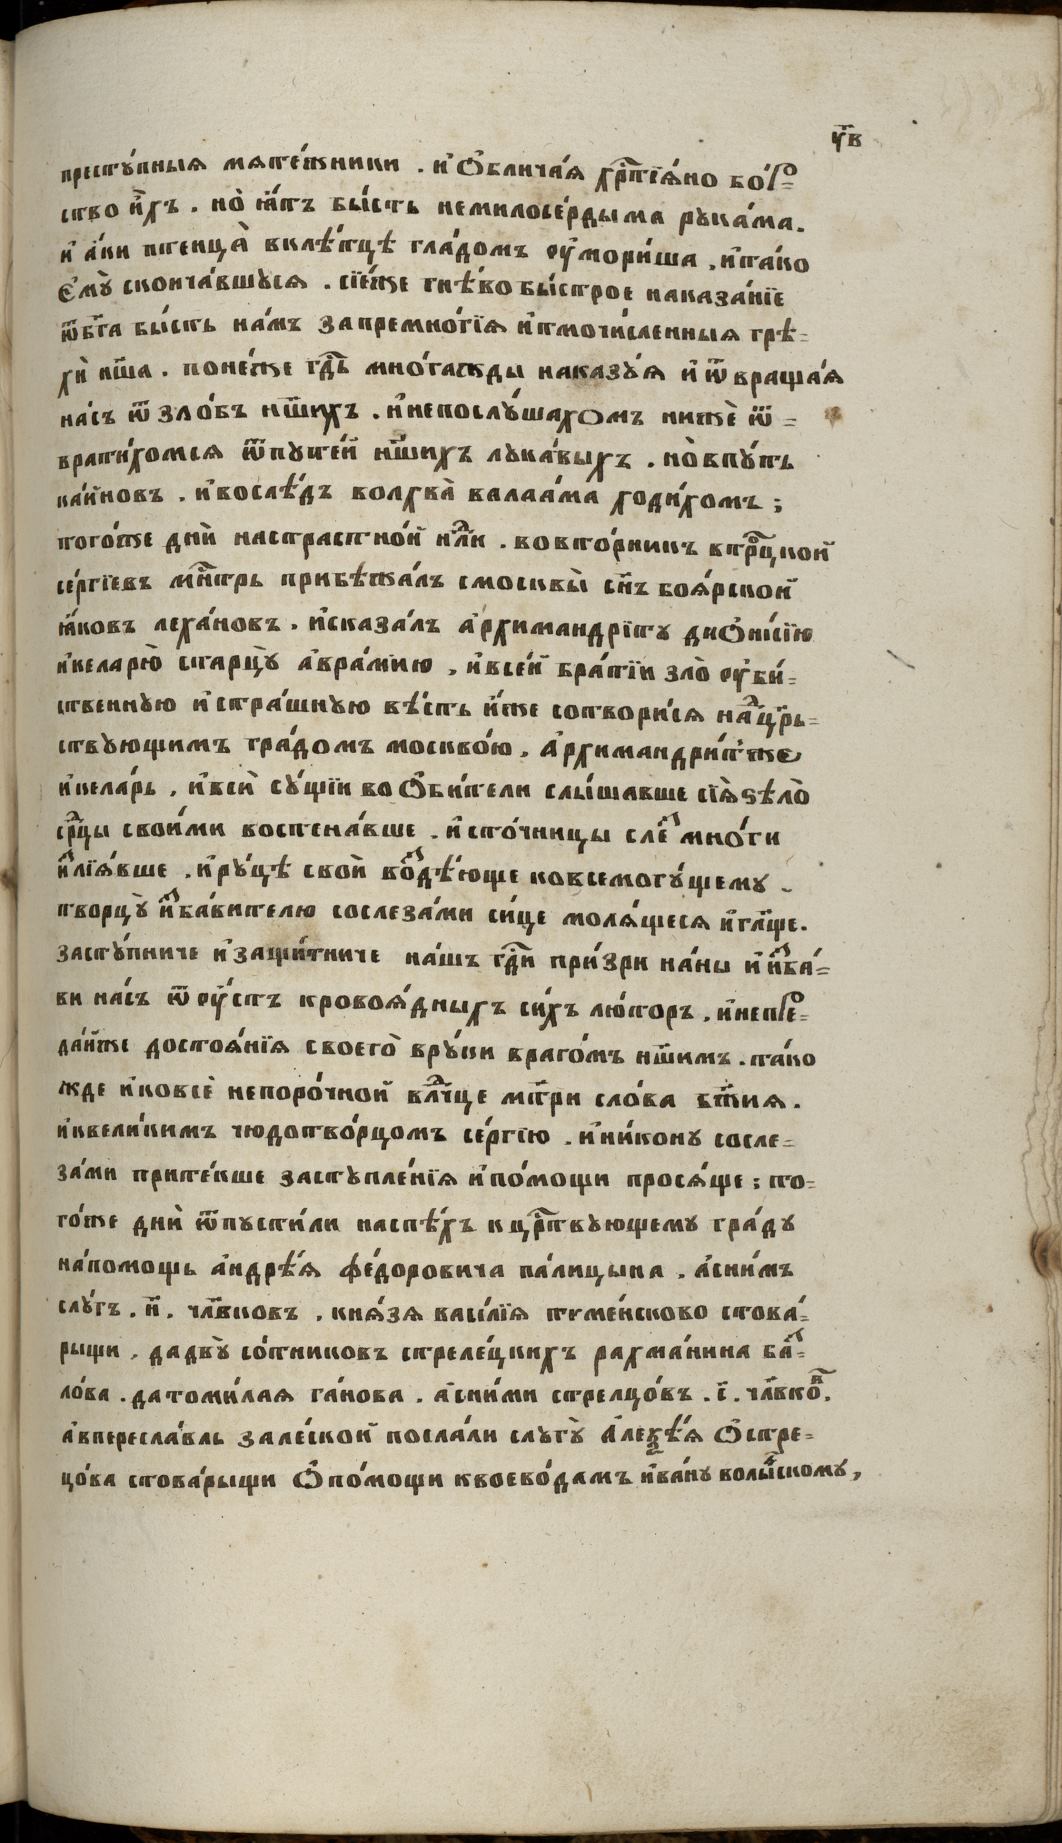 у҃в
престꙋ́пныѧ мѧте́жники . и҆ ѡ҆блича́ѧ хрⷭ҇тїѧ́но бо́р-
ство и҆́хъ . но̀ ꙗ҆́тъ бы́сть немилосе́рдыма рꙋка́ма .
и҆ а҆́ки птенца̀ вклѣ́тцѣ гла́домъ ᲂу҆мори́ша . и҆ та́ко
є҆мꙋ̀ сконча́вшꙋсѧ . сїе́же гнѣ́во бы́строе наказа́нїе
ѿ бг҃а бы́сть на́мъ за премно́гїѧ и҆ тмочи́сленныѧ грѣ-
хѝ на́ша . поне́же гдⷭ҇ь мно́гажды наказꙋ́ѧ и҆ ѿвраща́ѧ
на́съ ѿ зло́бъ на́шихъ . и҆ непослꙋ́шахомъ нижѐ ѿ-
врати́хомсѧ ѿ пꙋте́й на́шихъ лꙋка́выхъ . но̀ впꙋ́ть
ка́иновъ . и҆ восле́дъ волхва̀ валаа́ма ходи́хомъ ;
тогѡ́же днѝ настрастно́й нⷣли . во вто́рникъ втро́ицкой
се́ргїевъ мнⷭ҇трь прибѣжа́лъ смосквы̀ сн҃ъ боѧ́рской
ꙗ҆́ковъ леха́новъ . и҆ сказа́лъ а҆рхимандри́тꙋ дионисїю
и҆ келарю̀ ста́рцꙋ а҆вра́мїю . и҆ все́й бра́тїи зло̀ ᲂу҆би́-
ственнꙋю и҆ стра́шнꙋю вѣ́сть и҆́же сотвори́сѧ надⷣ цр҃ь-
ствꙋющимъ гра́домъ москво́ю . а҆рхимандри́тже
и҆ кела́рь , и҆ всѝ сꙋ́щїи во ѡ҆би́тели слы́шавше сїѧ̀ ѕѣло̀
срⷣцы свои́ми востена́вше . и҆ сто́чницы сле́з мно́ги
и҆злїѧ́вше . и҆ рꙋ́цѣ своѝ воздѣ́юще ковсемогꙋ́щемꙋ
творцꙋ̀ и҆зба́вителю сослеза́ми си́це молѧ́щесѧ и҆ гл҃ще .
застꙋ́пниче и҆ защи́тниче на́шъ гдⷭ҇и при́зри на́ны и҆ и҆зба́-
ви на́съ ѿ ᲂу҆́стъ кровоѧ́дныхъ си́хъ лю́торъ . и҆ непре-
да́йже достоѧ́нїѧ своегѡ̀ врꙋ́ки враго́мъ на́шимъ . та́ко
жде и҆ ковсѐ непоро́чной влⷣчце мт҃ри сло́ва бж҃иѧ .
и҆ квели́кимъ чюдотво́рцомъ се́ргїю . и҆ ни́конꙋ сосле-
за́ми прите́кше застꙋпле́нїѧ и҆ по́мощи просѧ́ще ; то-
гѡ́же днѝ ѿпꙋсти́ли наспѣ́хъ кцрⷭ҇твꙋющемꙋ гра́дꙋ
на́помощь а҆ндрѣ́ѧ фе́доровича па́лицына . а҆сни́мъ
слꙋ́гъ . н҃ . члв҃ковъ . кнѧ́зѧ васи́лїѧ тюме́нсково стова́-
рыщи . да двꙋ̀ со́тниковъ стреле́цкихъ рахма́нина ба́з-
ло́ва . да томи́лаѧ га́нова . а҆сни́ми стрелцо́въ . с҃ . члв҃ковъ .
а҆ впересла́вль зале́ской посла́ли слꙋгꙋ̀ а҆леѯѣ́ѧ ѡ҆стре-
цо́ва стова́рыщи ѡ҆ по́мощи квоево́дамъ и҆ва́нꙋ волы́нскомꙋ ,